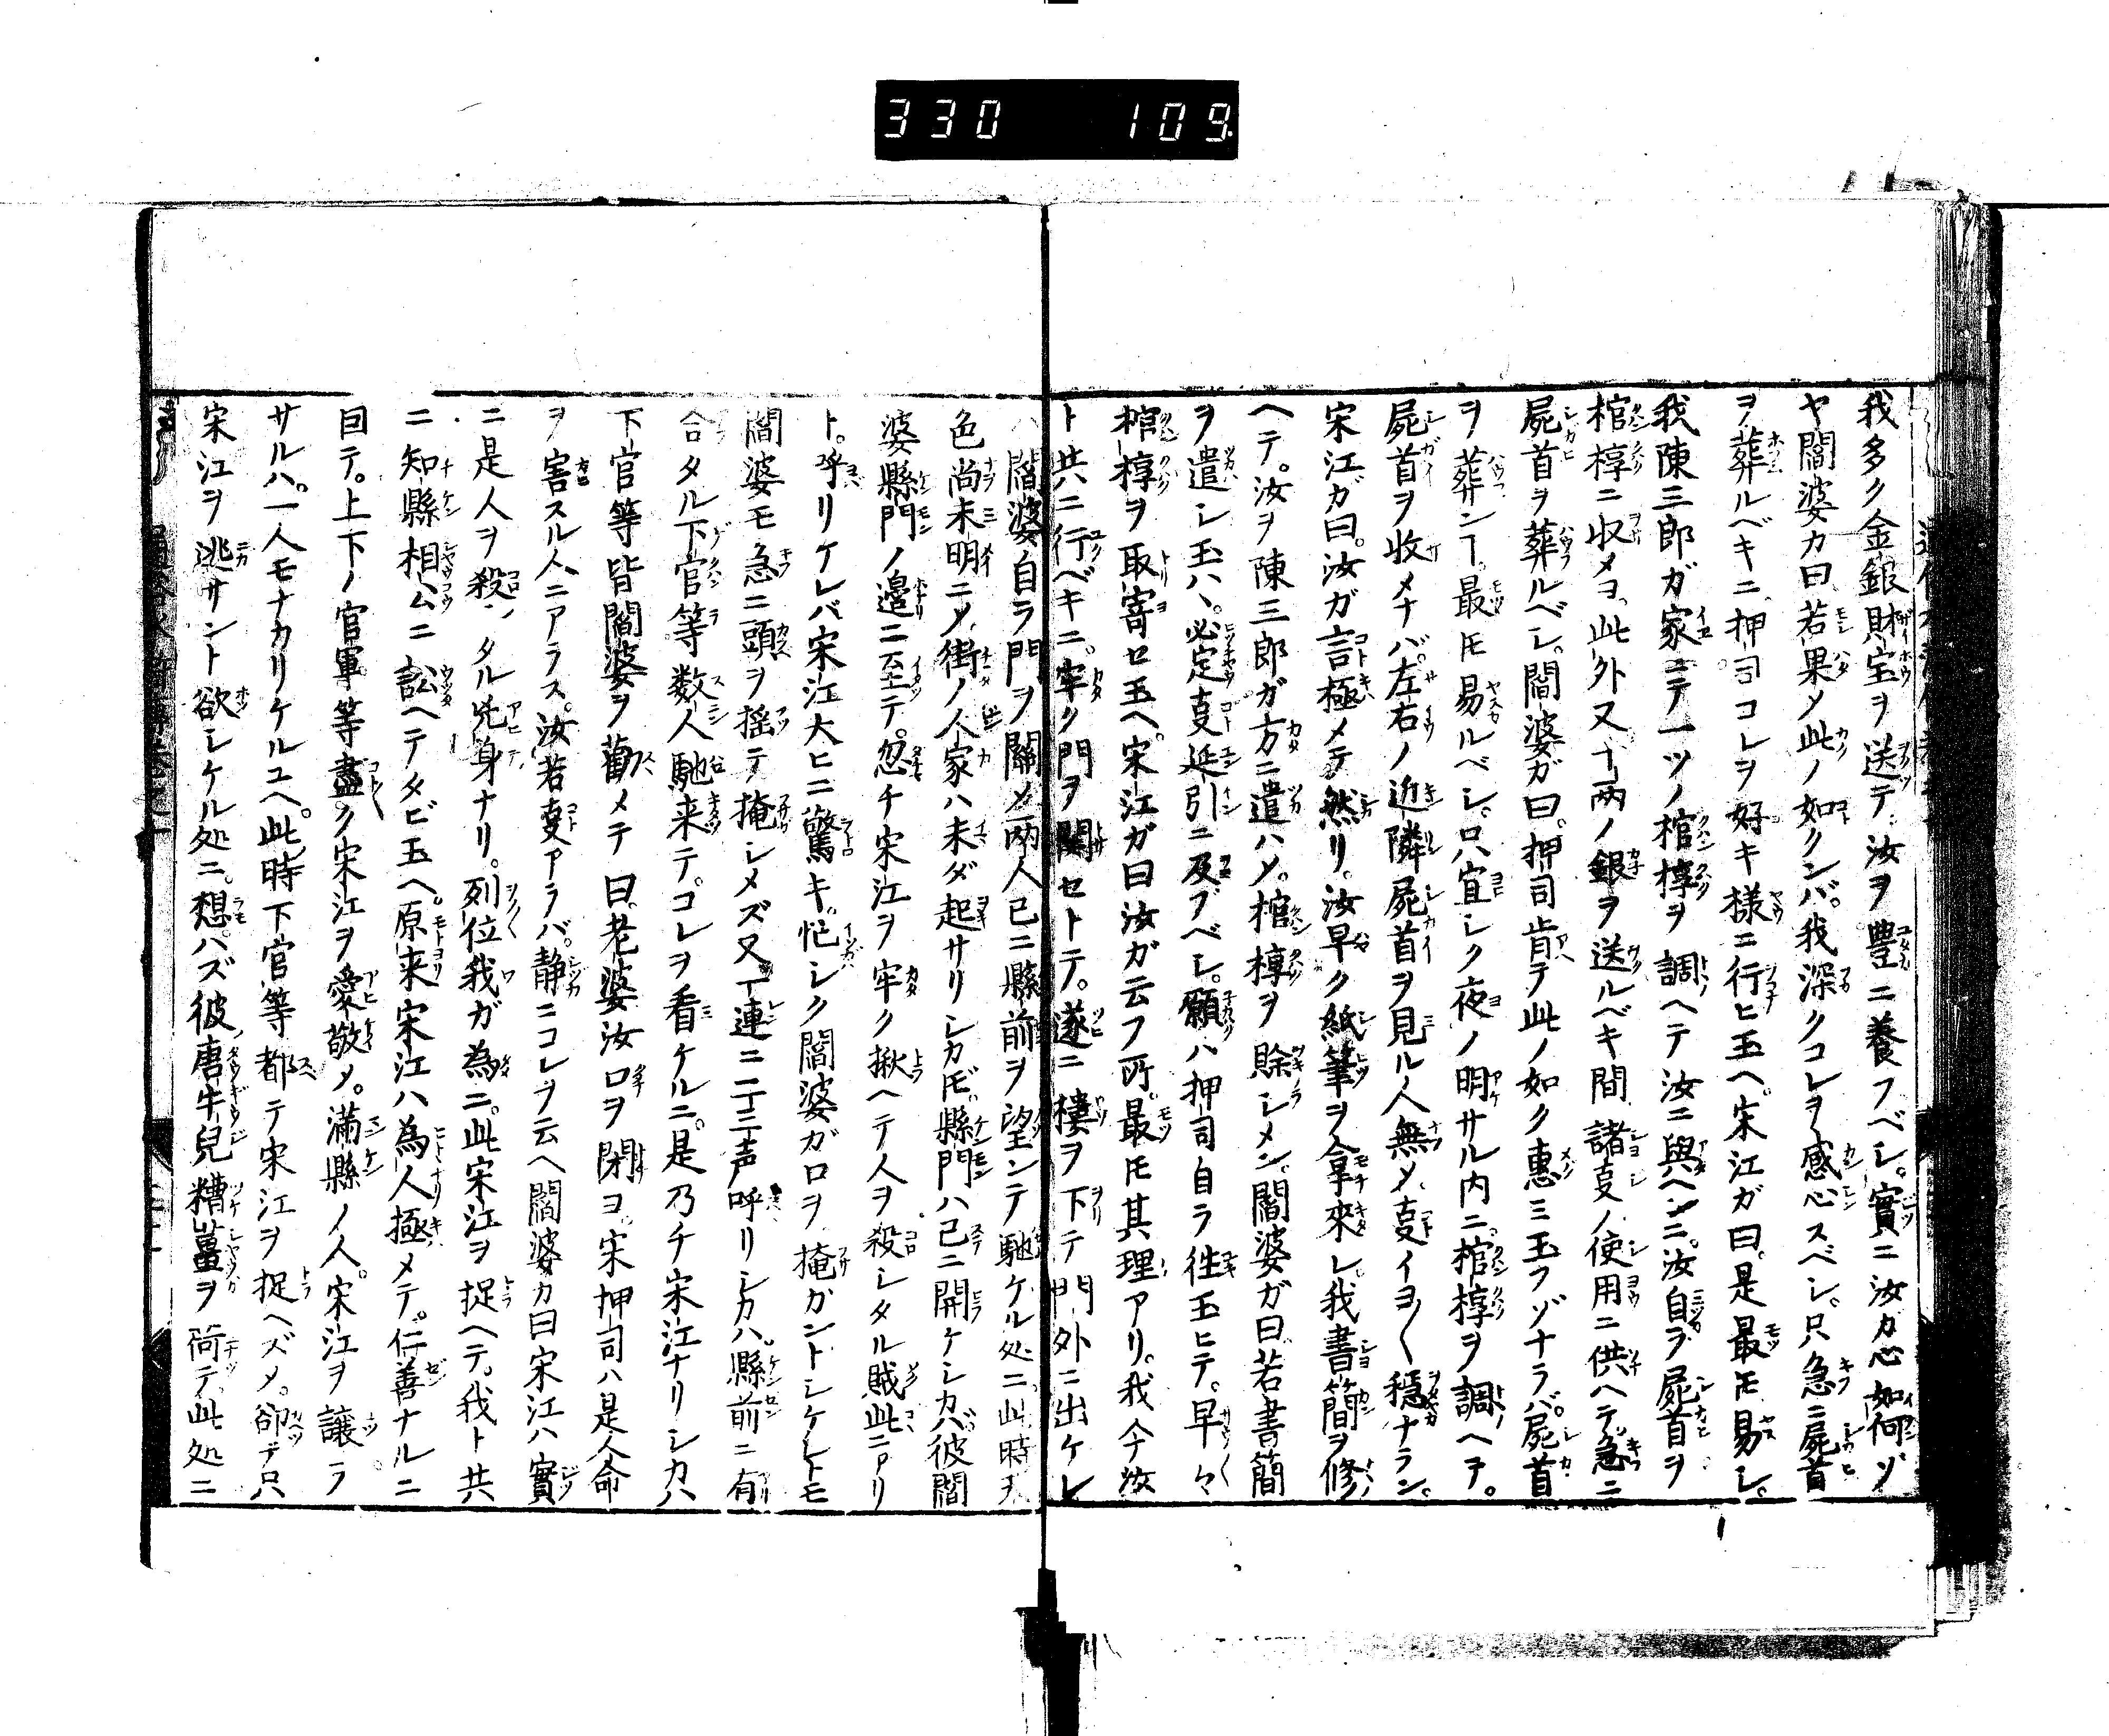 330 109.
我多ク金銀財宝ヲ送テ汝ヲ豊ニ養フベシ。實ニ汝カ心如何ゾ
ヤ閻婆カ曰若果〆此ノ如クンバ。我深クコレヲ感心スベシ。只急ニ屍首
ヲ葬ルベキニ。押司コレヲ好キ様ニ行ヒ玉ヘ。宋江ガ曰。是最モ易シ。
我陳三郎ガ家ニテ一ツノ棺椁ヲ調ヘテ汝ニ與ヘンニ。汝自ラ屍首ヲ
棺椁ニ収メヨ。此外又十両ノ銀ヲ送ルベキ間諸叓ノ使用ニ供ヘテ急ニ
屍首ヲ葬ルベシ。閻婆ガ曰。押司肯テ此ノ如ク惠ミ玉フゾナラバ。屍首
ヲ葬ンヿ。最モ易ルベシ。只宜シク夜ノ明サル内ニ。棺椁ヲ調ヘテ。
屍首ヲ收メナバ。左右ノ近隣屍首ヲ見ル人無〆叓イヨ〱穩ナラン。
宋江ガ曰。汝ガ言極メテ然リ。汝早ク紙筆ヲ拿來レ我書簡ヲ修
ヘテ。汝ヲ陳三郎ガ方ニ遣ハ〆。棺椁ヲ賖シメン。閻婆ガ曰若書簡
ヲ遣シ玉ハヽ。必定叓延引ニ及ブベシ。願ハ押司自ラ徃玉ヒテ。早々
棺椁ヲ取寄セ玉ヘ。宋江ガ曰汝ガ云フ所。最モ其理アリ。我今汝
ト共ニ行ベキニ。牢ク門ヲ関セトテ。遂ニ樓ヲ下テ門外ニ出ケレ
ハ閻婆自ラ門ヲ關〆両人已ニ縣前ヲ望ンテ馳ケル処ニ此時天
色尚未明ニ〆街ノ人家ハ未ダ起サリシカ𪜈。縣門ハ已ニ開ケシカバ彼閻
婆縣門ノ邉ニ至テ。忽チ宋江ヲ牢ク揪ヘテ人ヲ殺シタル賊此ニアリ
ト。呼リケレバ宋江大ヒニ驚キ。忙シク閻婆ガ口ヲ掩ガントシケレトモ
閻婆モ急ニ頭ヲ揺テ掩シメズ又一連ニ二三声呼リシカハ。縣前ニ有
合タル下官等数人馳来テ。コレヲ看ケルニ。是乃チ宋江ナリシカハ
下官等皆閻婆ヲ勸メテ曰。老婆汝口ヲ閉ヨ。宋押司ハ是人命
ヲ害スル人ニアラス。汝若叓アラバ。静ニコレヲ云ヘ閻婆カ曰宋江ハ實
ニ是人ヲ殺シタル兇身ナリ。列位我ガ為ニ。此宋江ヲ捉ヘテ。我ト共
ニ知縣相公ニ訟ヘテタビ玉ヘ。原来宋江ハ為人極メテ。仁善ナルニ
因テ。上下ノ官軍等盡ク宋江ヲ愛敬〆。滿縣ノ人。宋江ヲ讓ラ
サルハ。一人モナカリケルユヘ。此時下官等都テ宋江ヲ捉ヘズ〆。卻テ只
宋江ヲ逃サント欲シケル処ニ。想ハズ彼唐牛兒糟薑ヲ荷テ。此処ニ